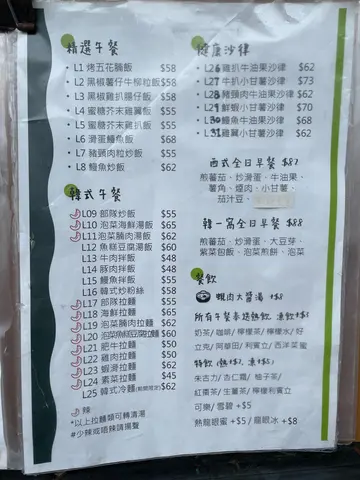 精選午餐
L1 烤五花腩飯 $58
L2 黑椒薯仔牛柳粒飯 $58
L3 黑椒雞扒腸仔飯 $58
L4 蜜糖芥末雞翼飯 $55
L5 蜜糖芥末雞扒飯 $55
L6 滑蛋鰻魚飯 $68
L7 豬頸肉粒炒飯 $55
L8 鰻魚炒飯 $62
韓式午餐
L09 部隊炒飯 $55
L10 泡菜海鮮湯飯 $65
L11 泡菜腩肉湯飯 $62
L12 魚糕豆腐湯飯 $60
L13 牛肉拌飯 $48
L14 豚肉拌飯 $48
L15 鰻魚拌飯 $55
L16 韓式炒粉絲 $58
L17 部隊拉麵 $55
L18 海鮮拉麵 $65
L19 泡菜腩肉拉麵 $62
L20 泡菜魚糕豆腐拉麵 $60
L21 肥牛拉麵 $50
L22 雞肉拉麵 $50
L23 蝦滑拉麵 $62
L24 素菜拉麵 $45
L25 韓式冷麵 $62
辣
*以上拉麵類可轉清湯
#少辣或唔辣請揚聲
健康沙律
L26 雞扒牛油果沙律 $62
L27 牛扒小甘薯沙律 $73
L28 豬頸肉牛油果沙律 $62
L29 鮮蝦小甘薯沙律 $70
L30 鰻魚牛油果沙律 $68
L31 雞翼小甘薯沙律 $62
西式全日早餐 $87
煎蕃茄、炒滑蛋、牛油果、
薯角、煙肉、小甘薯、
茄汁豆、
韓一窩全日早餐 $88
煎蕃茄、炒滑蛋、大豆芽、
紫菜包飯、泡菜煎餅、泡菜
餐飲
蜆肉大醬湯 +$8
所有午餐奉送熱飲, 凍飲+$5
奶茶/ 咖啡/ 檸檬茶/ 檸檬水/ 好
立克/ 阿華田/ 利賓立/ 西洋菜蜜
特飲 (熱+$2, 凍+$5)
朱古力/ 杏仁霜/ 柚子茶/
紅棗茶/ 生薑茶/ 檸檬利賓立
可樂/ 雪碧 +$5
熱龍眼蜜 +$5 / 龍眼冰 +$8